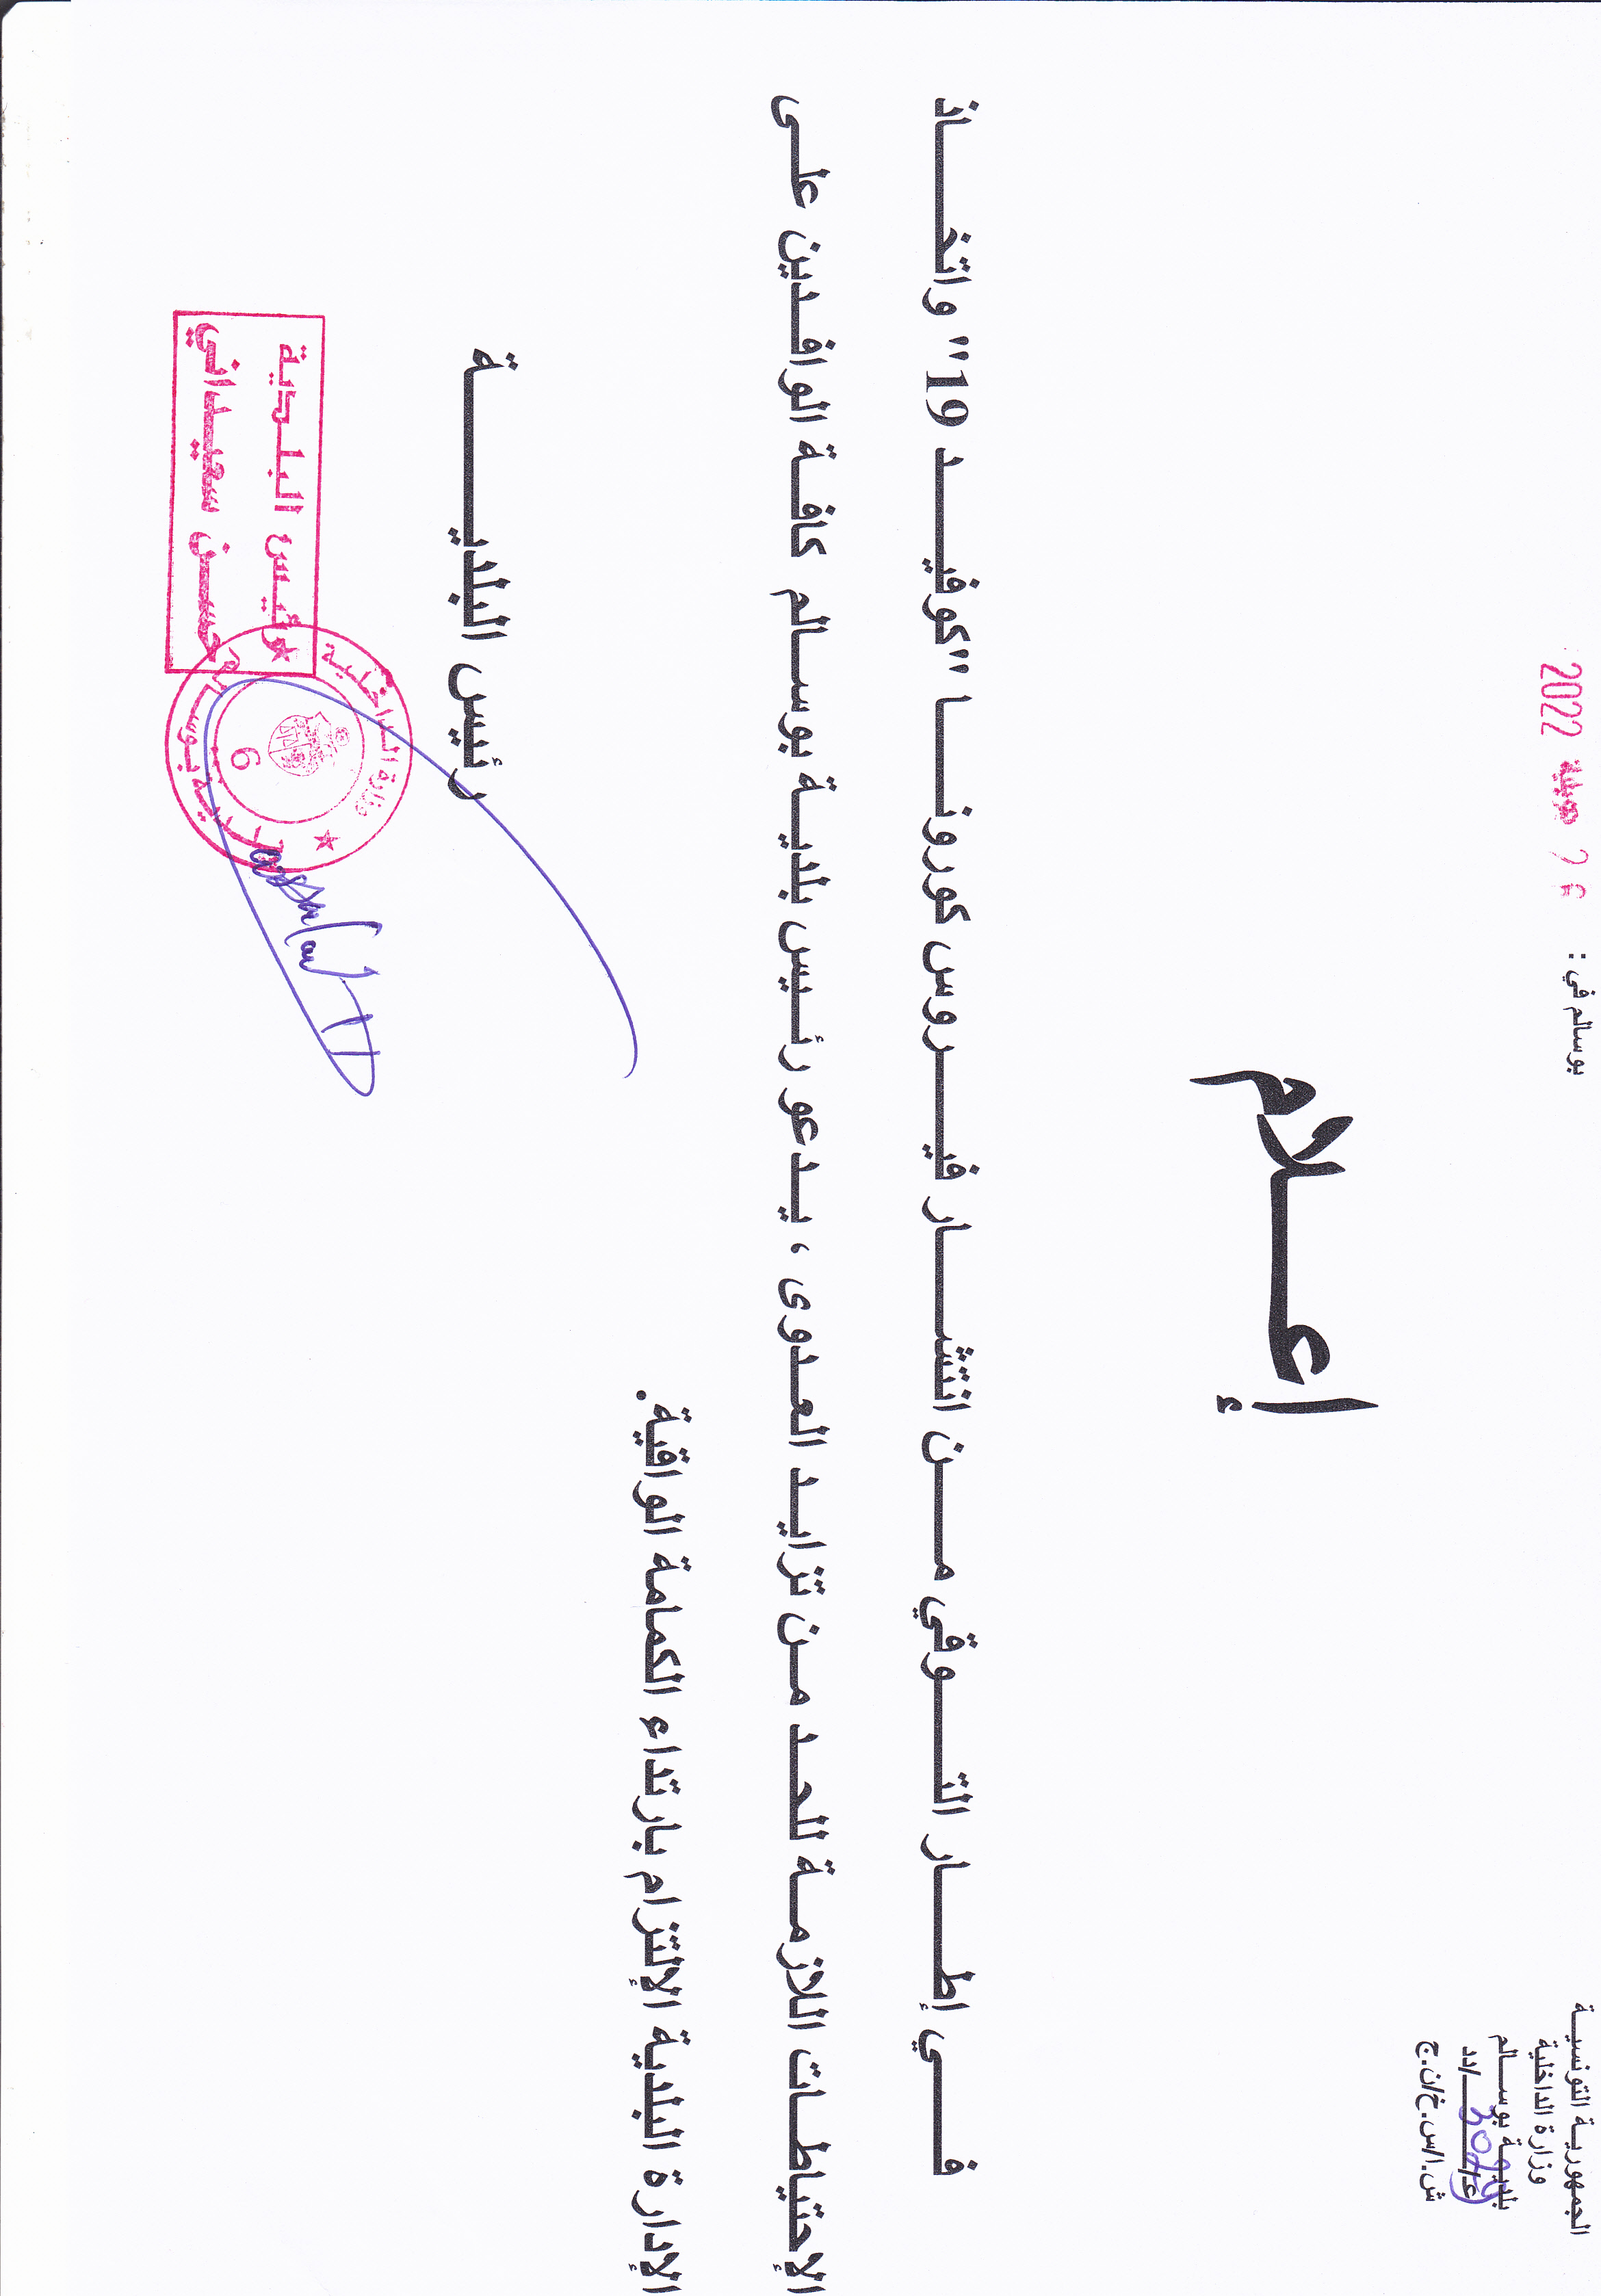 الجمهورية التونسية
وزارة الداخلية
بلدية بوسالم
عـ/ـدد
ش.ا/س.خ/ن.ج
بوسالم في : جويلية 2022
إعلام
في إطار التوقي من انتشار فيروس كورونا "كوفيد 19" واتخاذ
الإحتياطات اللازمة للحد من تزايد العدوى ، يدعو رئيس بلدية بوسالم كافة الوافدين على
الإدارة البلدية الإلتزام بارتداء الكمامة الواقية.
رئيس البلدية
رئيس البلدية
حسن سعيداني
وزارة الداخلية
بلدية بوسالم
6